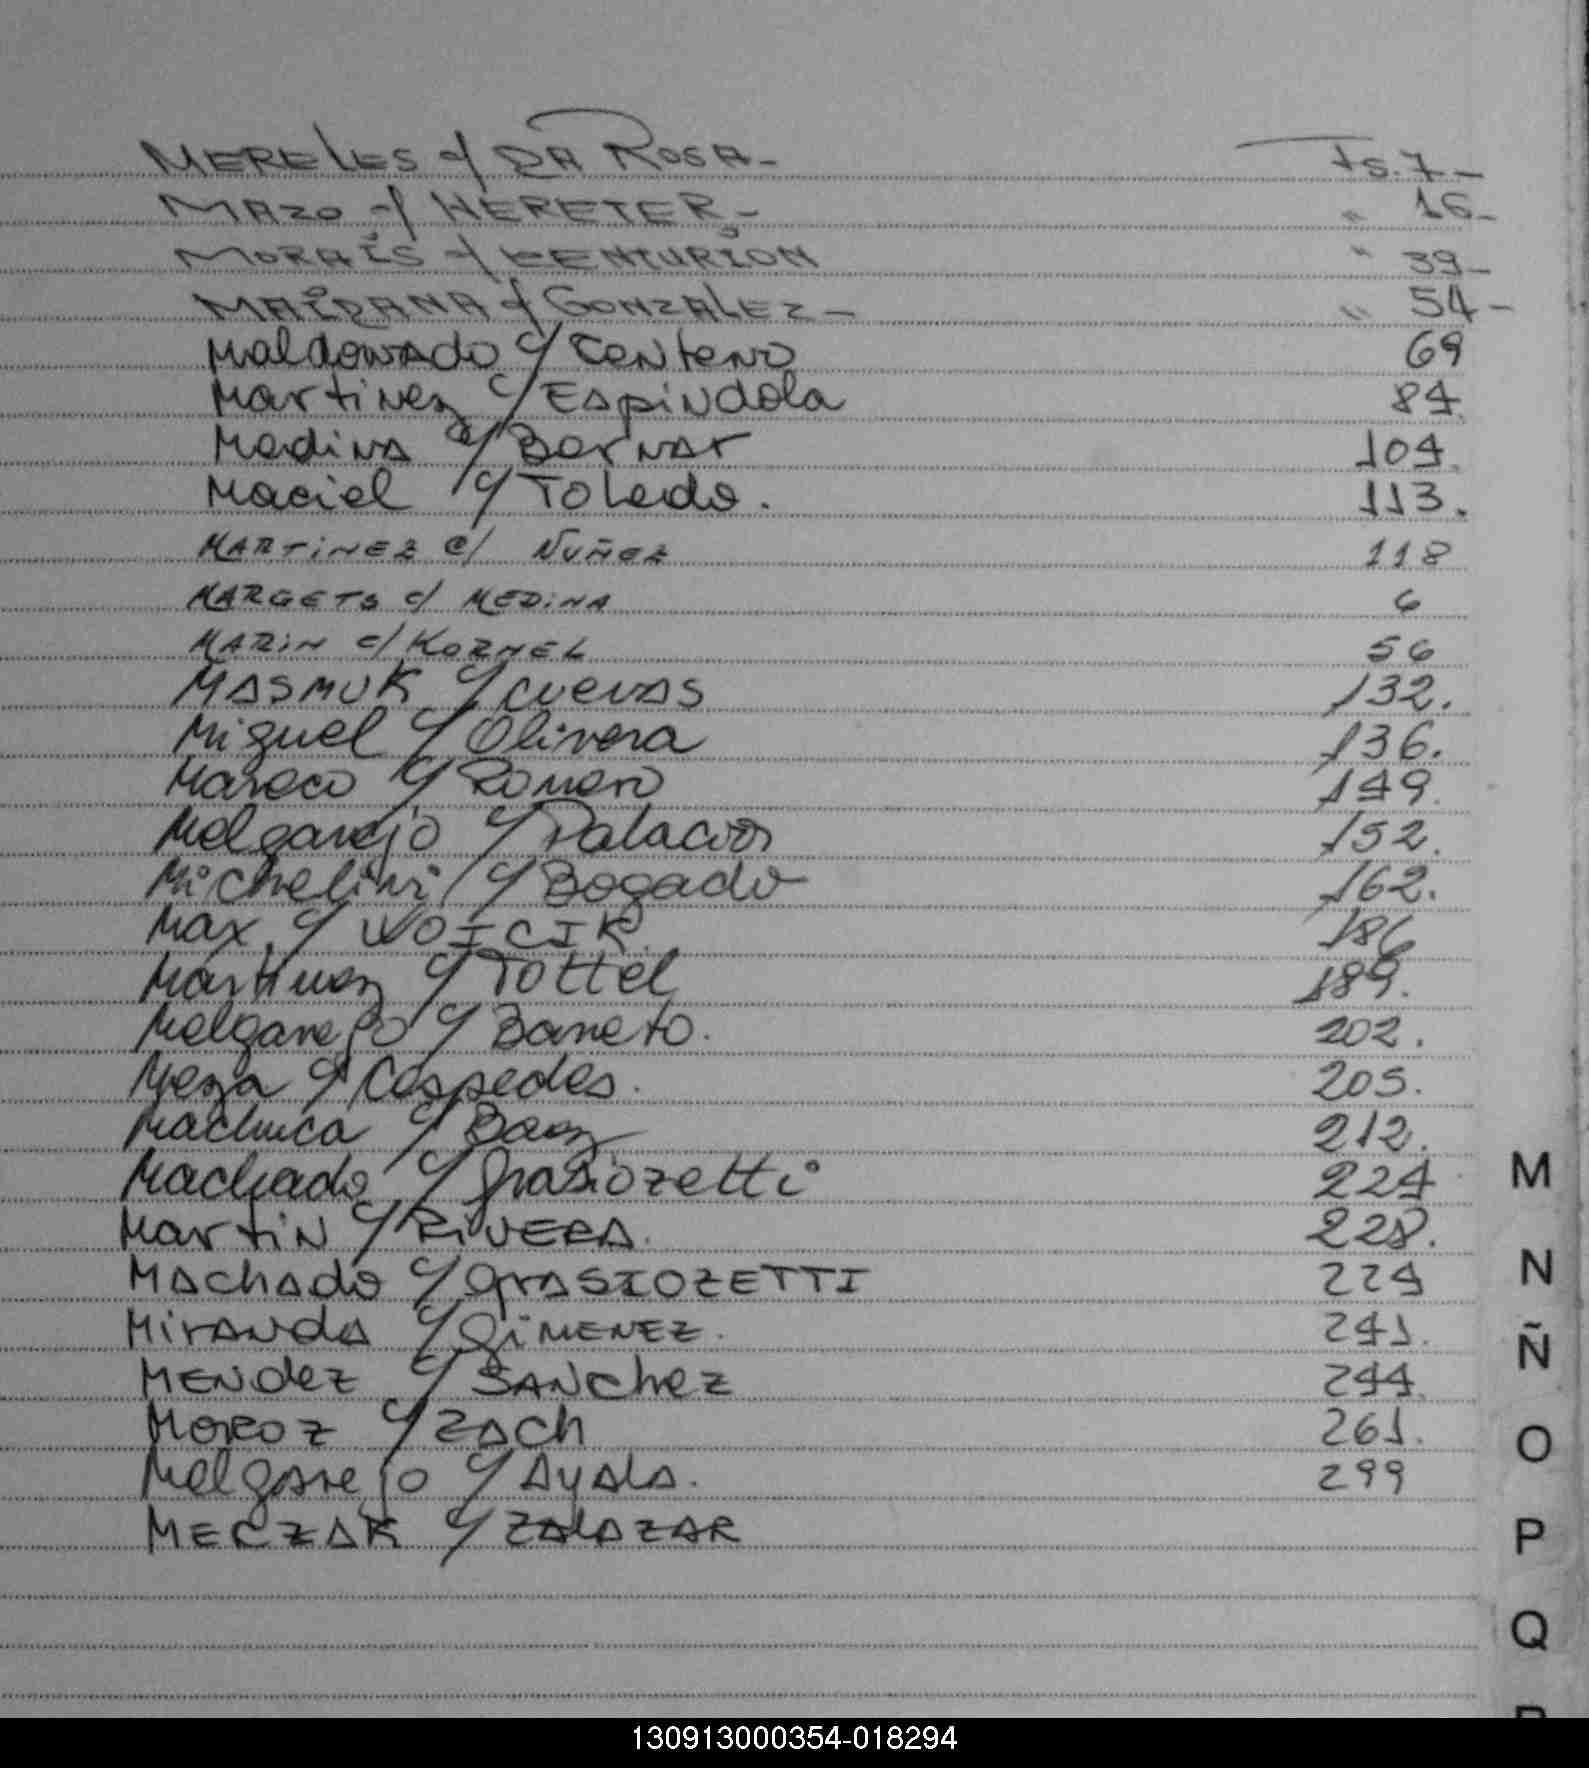 MERELES c/ DA ROSA- Fs. 7-
MAZO c/ HERETER- " 16-
MORAIS c/ CENTURION " 39-
MAIDANA c/ GONZALEZ- " 54-
Maldonado c/ Centeno 69
Martinez c/ Espindola 84.
Medina c/ Bernar 104.
Maciel c/ Toledo. 113.
MARTINEZ c/ NUÑEZ 118
MARGETS c/ MEDINA 6
MARIN c/ KORMEL 56
MASMUK c/ cuevas 132.
Miguel c/ Olivera 136.
Mareco c/ Romero 149.
Melgarejo c/ Palacios 152.
Michelini c/ Bogado 162.
Max. c/ WOICIK. 186
Martinez c/ Tottel 189.
Melgarejo c/ Barreto. 202.
Meza c/ Cespedes. 205.
Machuca c/ Baez 212.
Machado c/ Grasiozetti 224
Martin c/ RIVERA. 228.
Machado c/ GRASIOZETTI 224
Miranda c/ GIMENEZ. 241.
MENdez c/ SANchez 244.
Moroz c/ ZACh 261.
Melgarejo c/ Ayala. 299
MECZAK c/ ZALAZAR
M
N
Ñ
O
P
Q
130913000354-018294